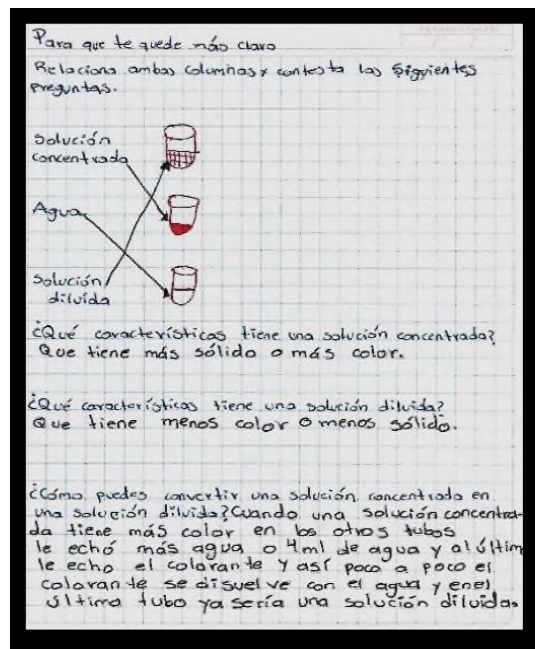 Para que te quede más claro
Relaciona ambas columnas y contesta las siguientes
preguntas.
Solución
concentrada
Agua
Solución
diluida
¿Qué características tiene una solución concentrada?
Que tiene más sólido o más color.
¿Qué características tiene una solución diluida?
Que tiene menos color o menos sólido.
¿Cómo puedes convertir una solución concentrada en
una solución diluida? Cuando una solución concentra-
da tiene más color en los otros tubos
le echó más agua o 4ml de agua y al últim
le echo el colorante y así poco a poco el
colorante se disuelve con el agua y en el
último tubo ya sería una solución diluida.